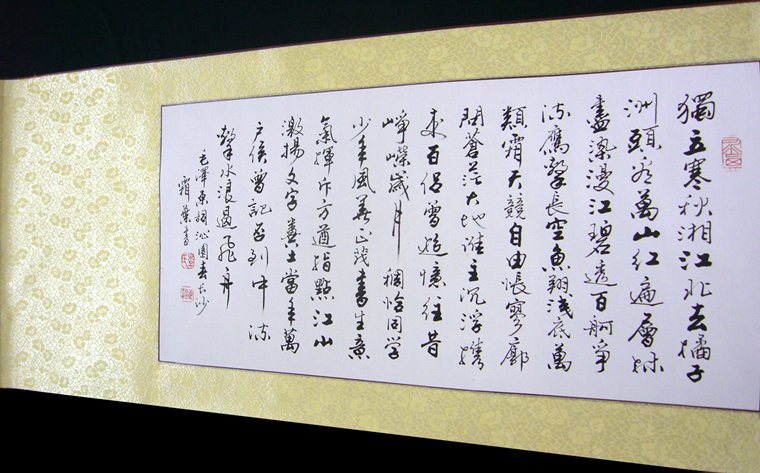 獨立寒秋湘江北去橘子
洲頭看萬山紅遍層林
盡染漫江碧透百舸爭
流鷹擊長空魚翔淺底萬
類霜天競自由悵寥廓
問蒼茫大地誰主沉浮攜
來百侶曾遊憶往昔
崢嶸歲月稠恰同学
少年風華正茂書生意
氣揮斥方遒指點江山
激揚文字糞土當年萬
戶侯曾記否到中流
擊水浪遏飛舟
毛澤東詞沁園春長沙
霜葉書